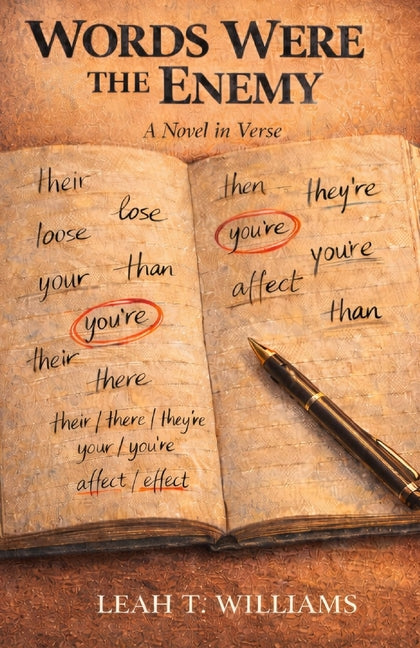 WORDS WERE
THE ENEMY
A Novel in Verse
their
lose
loose
your than
you're
their
there
their / there / they're
your / you're
affect / effect
then they're
you're
you're
affect
than
LEAH T. WILLIAMS